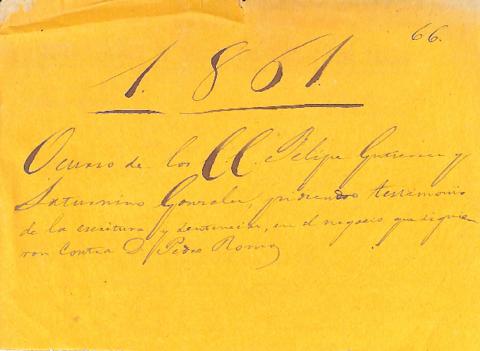 66.
1861.
Ocurso de los CC. Felipe Gutierrez y
Saturnino Gonzalez, pidiendo testimonio
de la escritura y sentencias, en el negocio que siguie
ron contra D. Pedro Romo